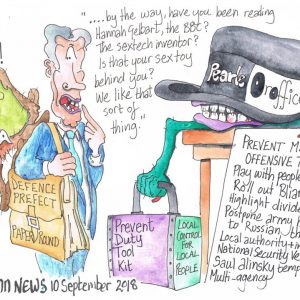 "....by the way, have you been reading
Hannah Gelbart, the BBC?
The sextech inventor?
Is that your sex toy
behind you?
We like that
sort of
thing."
!
Pearl
Profice
DEFENCE
PREFECT
PAPER ROUND
Prevent
Duty
Tool
Kit
LOCAL
CONTROL
FOR
LOCAL
PEOPLE
PREVENT M
OFFENSIVE
Play with people
Roll out Blia
Highlight divide
Postpone army
to 'Russian, th
Local authority + n
National Security Ve
Saul alinsky temp
Multi-agency
NEWS 10 September 2018